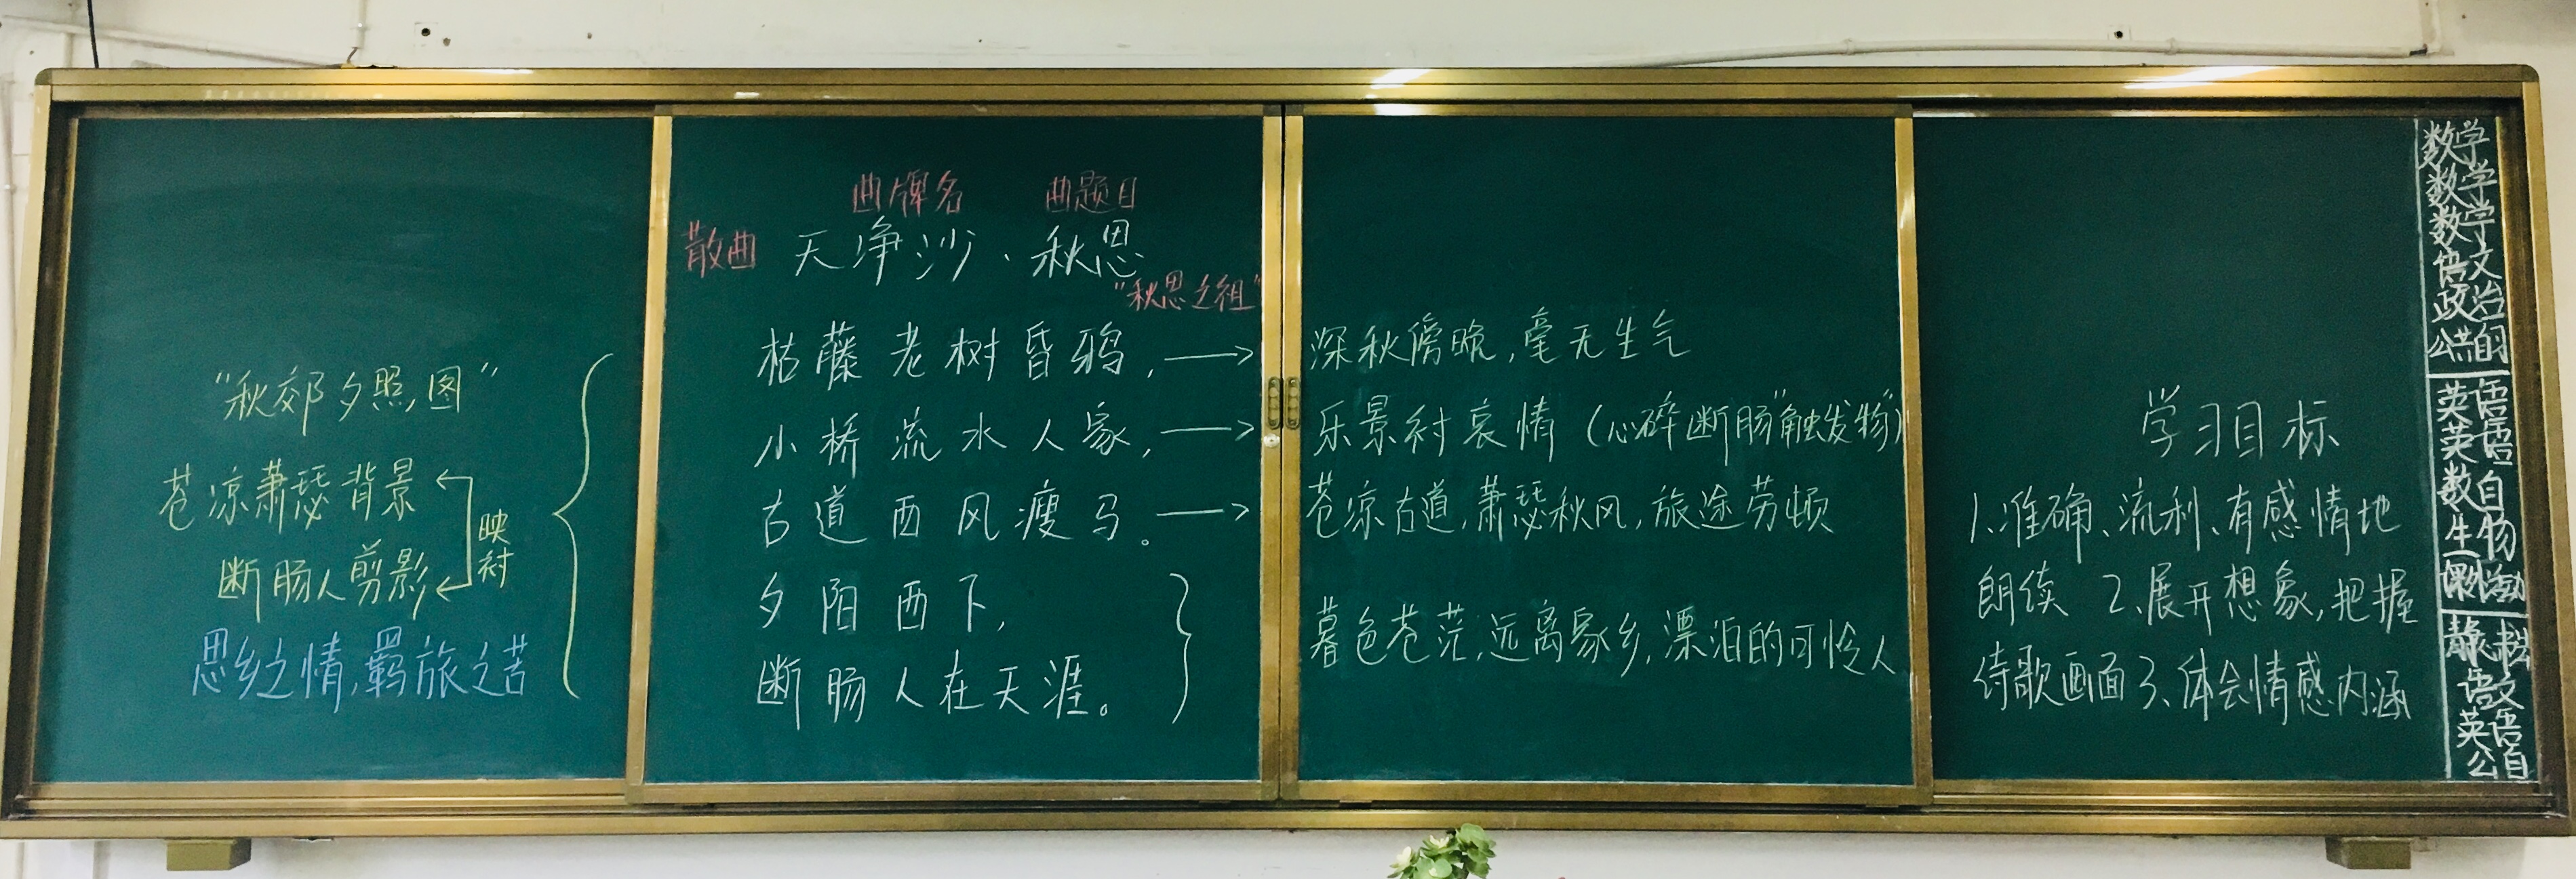 "秋郊夕照图"
苍凉萧瑟背景
断肠人剪影
映衬
思乡之情,羁旅之苦
曲牌名 曲题目
散曲 天净沙·秋思
"秋思之祖"
枯藤老树昏鸦,
小桥流水人家,
古道西风瘦马。
夕阳西下,
断肠人在天涯。
深秋傍晚,毫无生气
乐景衬哀情(心碎断肠"触发物")
苍凉古道,萧瑟秋风,旅途劳顿
暮色苍茫,远离家乡,漂泊的可怜人
学习目标
1、准确、流利、有感情地
朗读 2、展开想象,把握
诗歌画面 3、体会情感内涵
数学
数学
数学
语文
政治
英语
英语
数自
生物
语文
英语
公自